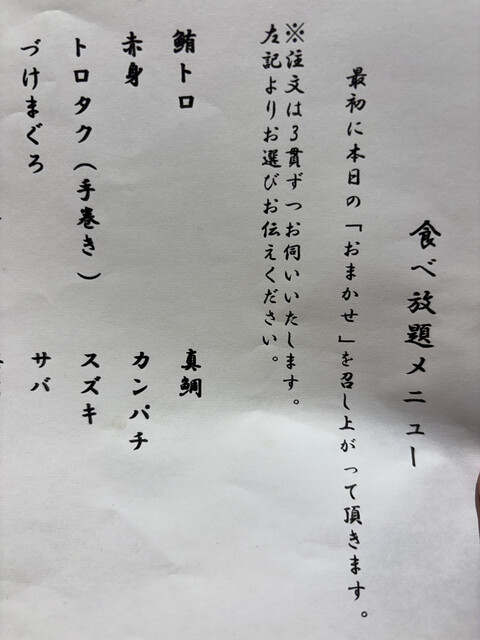 食べ放題メニュー
最初に本日の「おまかせ」を召し上がって頂きます。
※注文は3貫ずつお伺いいたします。
左記よりお選びお伝えください。
鮪トロ
真鯛
赤身
カンパチ
トロタク（手巻き）
スズキ
づけまぐろ
サバ